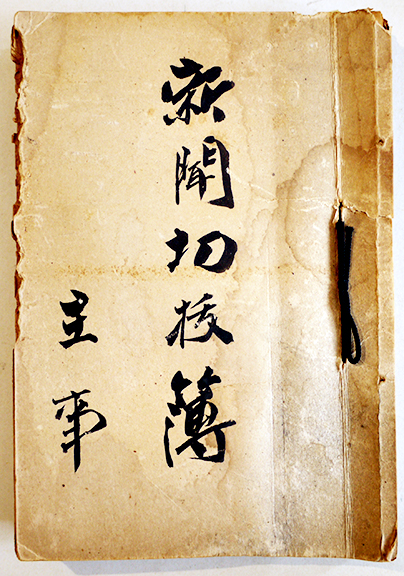 新聞切抜簿
主事